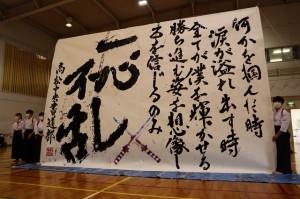 何かを掴んだ時
涙が溢れ出す時
全てが僕を輝かせる
勝ち進む姿を想像し
己を信じるのみ
一心不乱
書道部